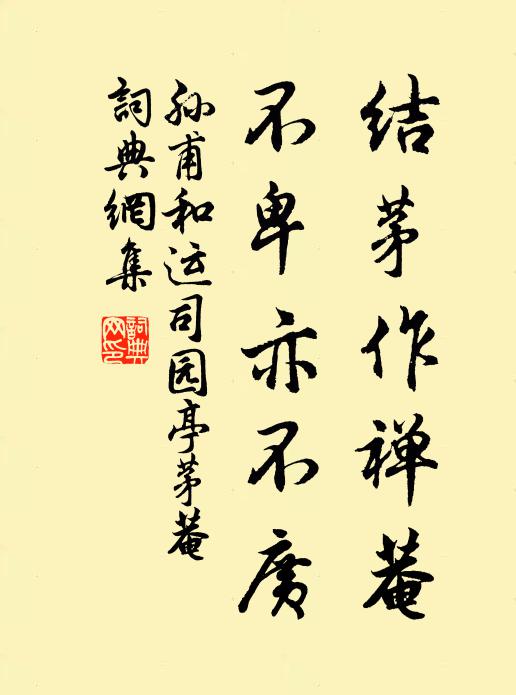 结茅作禅菴
不卑亦不廣
孙甫和运司园亭茅菴
詞典網集
詞典网印